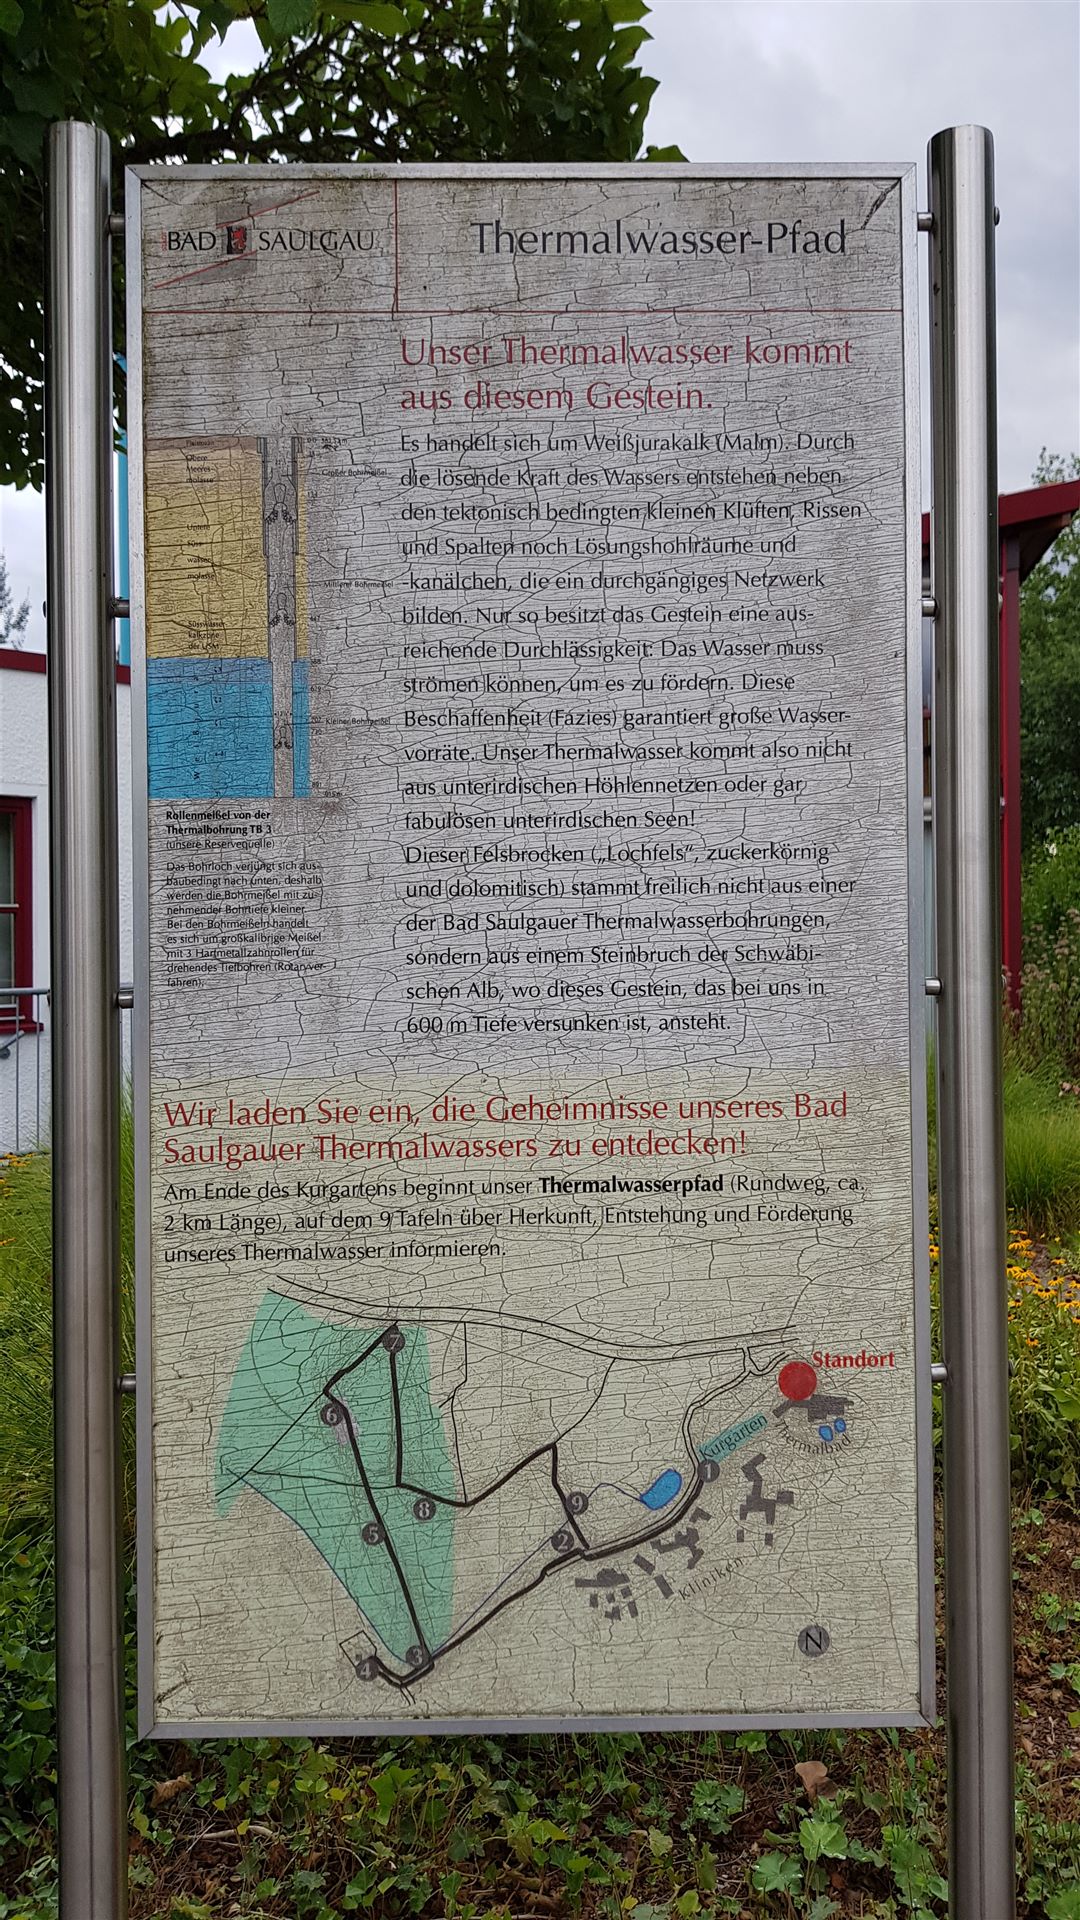 BAD SAULGAU
Thermalwasser-Pfad
Unser Thermalwasser kommt
aus diesem Gestein.
Es handelt sich um Weißjurakalk (Malm). Durch
die lösende Kraft des Wassers entstehen neben
den tektonisch bedingten kleinen Klüften, Rissen
und Spalten noch Lösungshohlräume und
-kanälchen, die ein durchgängiges Netzwerk
bilden. Nur so besitzt das Gestein eine aus-
reichende Durchlässigkeit: Das Wasser muss
strömen können, um es zu fördern. Diese
Beschaffenheit (Fazies) garantiert große Wasser-
vorräte. Unser Thermalwasser kommt also nicht
aus unterirdischen Höhlennetzen oder gar
fabulösen unterirdischen Seen!
Dieser Felsbrocken („Lochfels“, zuckerkörnig
und dolomitisch) stammt freilich nicht aus einer
der Bad Saulgauer Thermalwasserbohrungen,
sondern aus einem Steinbruch der Schwäbi-
schen Alb, wo dieses Gestein, das bei uns in
600 m Tiefe versunken ist, ansteht.
Obere
Meeres
molasse
Untere
Süss
wasser
molasse
Süsswasser
kalkzone
der USM
Großer Bohrmeißel
Mittlerer Bohrmeißel
Kleiner Bohrmeißel
Rollenmeißel von der
Thermalbohrung TB 3
(unsere Reservequelle)
Das Bohrloch verjüngt sich aus-
baubedingt nach unten, deshalb
werden die Bohrmeißel mit zu-
nehmender Bohrtiefe kleiner.
Bei den Bohrmeißeln handelt
es sich um großkalibrige Meißel
mit 3 Hartmetallzahnrollen für
drehendes Tiefbohren (Rotaryver-
fahren).
Wir laden Sie ein, die Geheimnisse unseres Bad
Saulgauer Thermalwassers zu entdecken!
Am Ende des Kurgartens beginnt unser Thermalwasserpfad (Rundweg, ca.
2 km Länge), auf dem 9 Tafeln über Herkunft, Entstehung und Förderung
unseres Thermalwasser informieren.
7
Standort
6
Kurgarten
Thermalbad
1
8
9
5
2
Kliniken
N
3
4